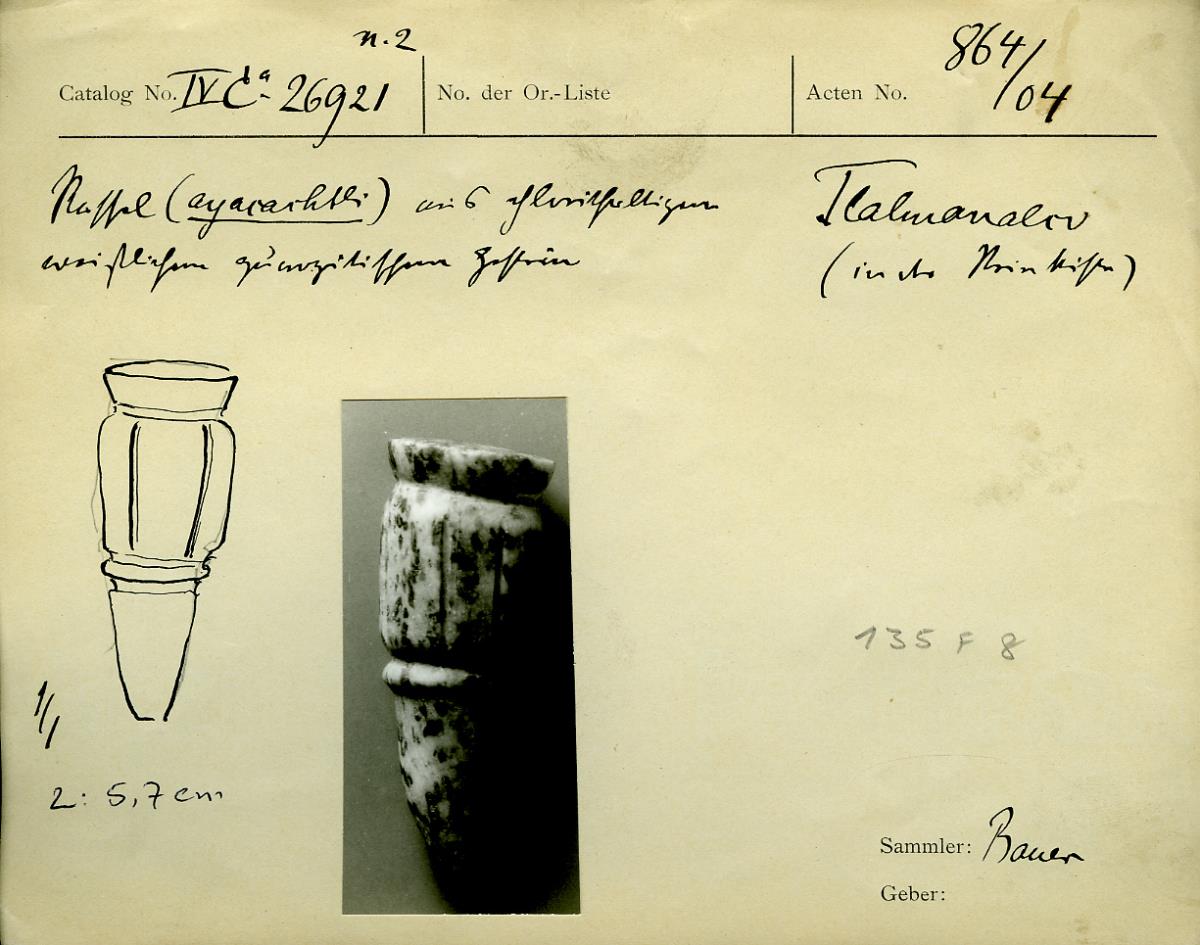 n. 2
Catalog No. IV Ca 26921
No. der Or.-Liste
Acten No. 864/04
Rassel (ayacachtli) aus chlorithaltigem
weißlichem quarzitischem Gestein
Tlalmanalco
(in der Steinkiste)
1/1
2: 5,7 cm
135 F 8
Sammler: Bauer
Geber: